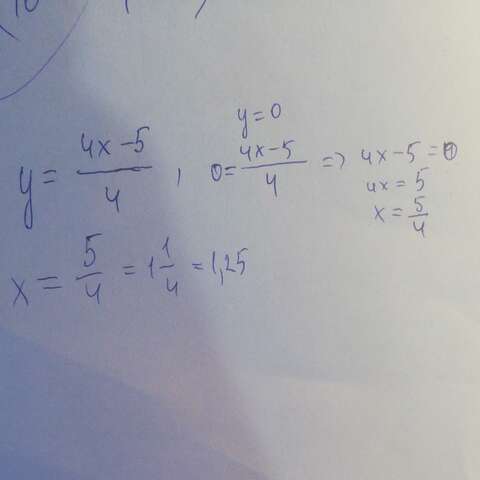 y = (4x - 5)/4 ,
y = 0
0 = (4x - 5)/4 => 4x - 5 = 0
4x = 5
x = 5/4
x = 5/4 = 1 1/4 = 1,25